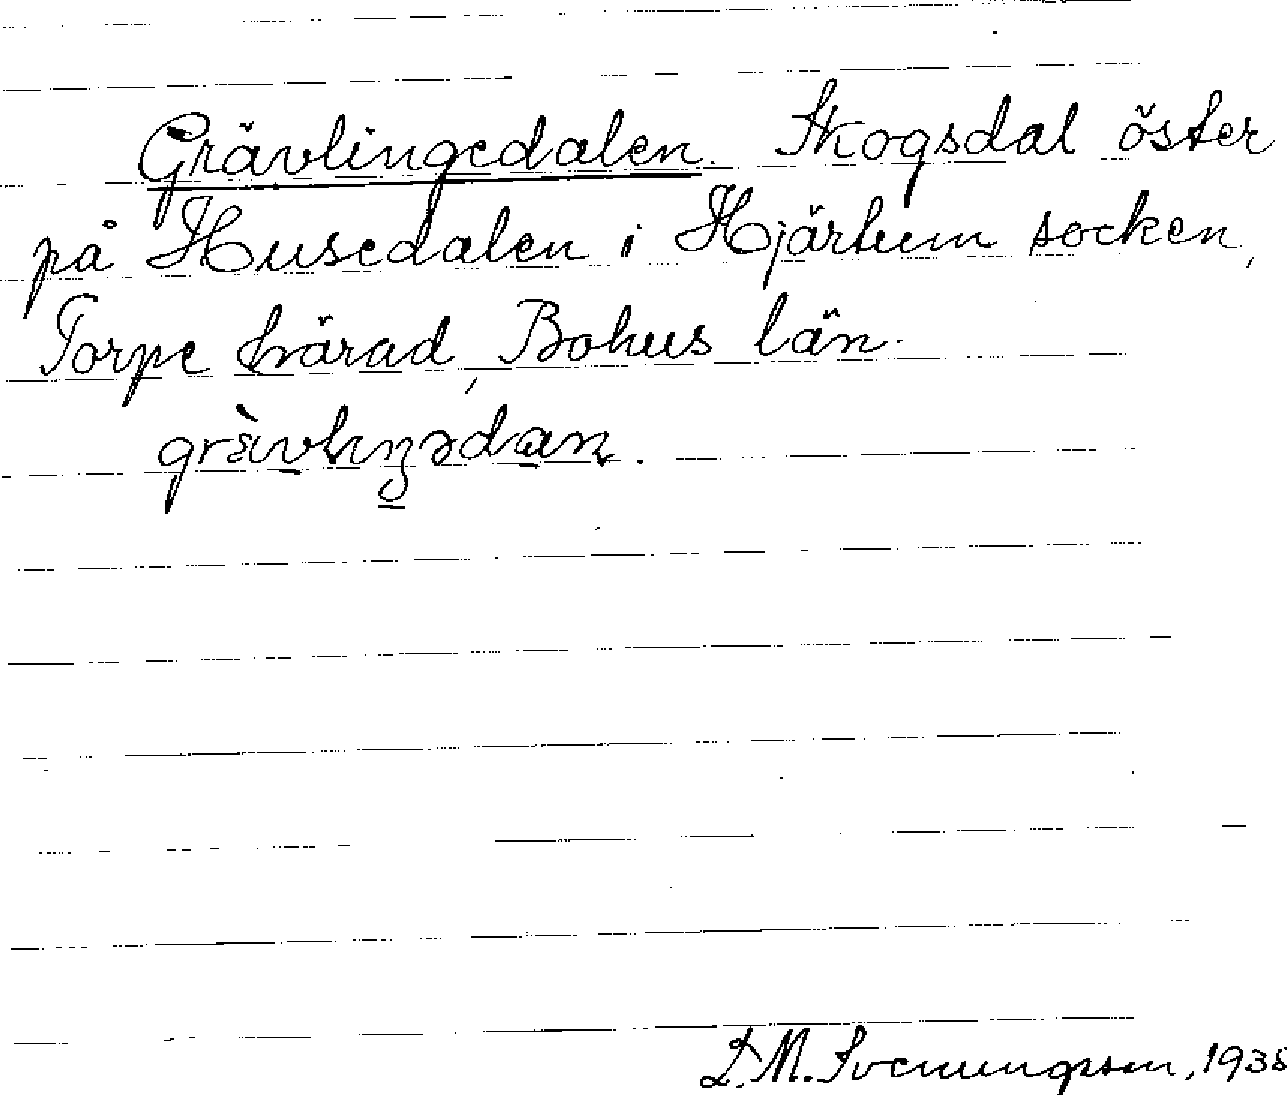 Grävlingedalen. Skogsdal öster
på Husedalen i Hjärtum socken,
Torpe härad, Bohus län.
grävlıŋədan.
D.M. Svenungsson, 1935